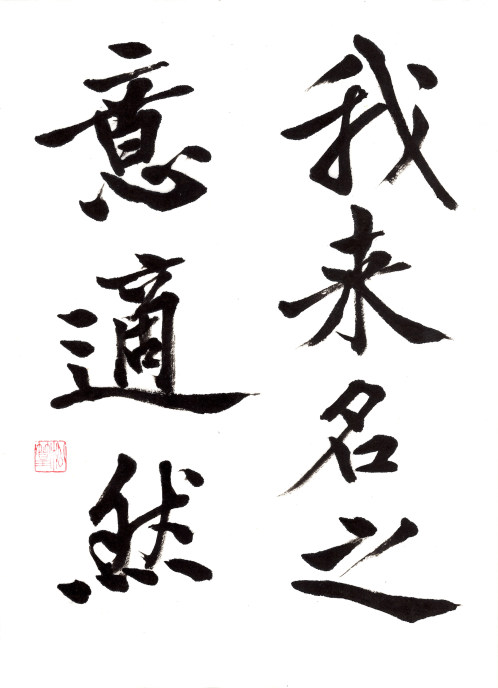 我来名之
意適然